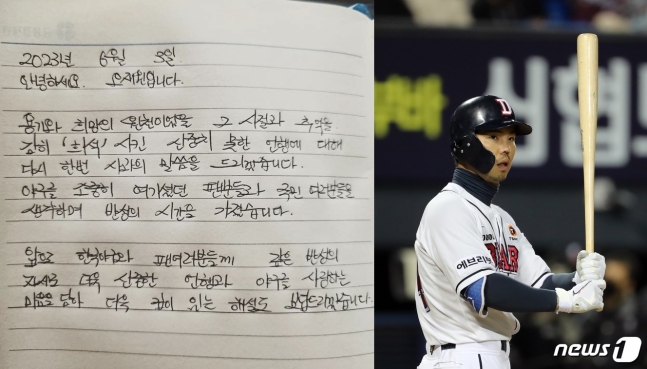 2023년 6월 5일
안녕하세요. 오재원입니다.
용기와 희망의 원천이었을 그 시절과 추억을
감히 '회상' 시킨 신중치 못한 언행에 대해
다시 한번 사과의 말씀을 드리겠습니다.
야구를 소중히 여기셨던 팬분들과 국민 여러분들을
생각하며 반성의 시간을 가졌습니다.
앞으로 한국야구와 팬여러분들께 깊은 반성의
자세로 더욱 신중한 언행과 야구를 사랑하는
마음을 담아 더욱 깊이 있는 해설로 보답드리겠습니다.
신협
D
에브리
news1